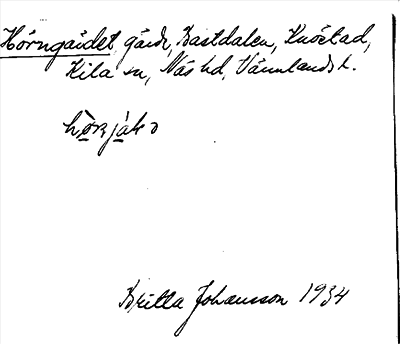 Hörngärdet gård, Bastdalen, Knöstad,
Kila sn, Näs hd, Värmlands l.
Britta Johansson 1934